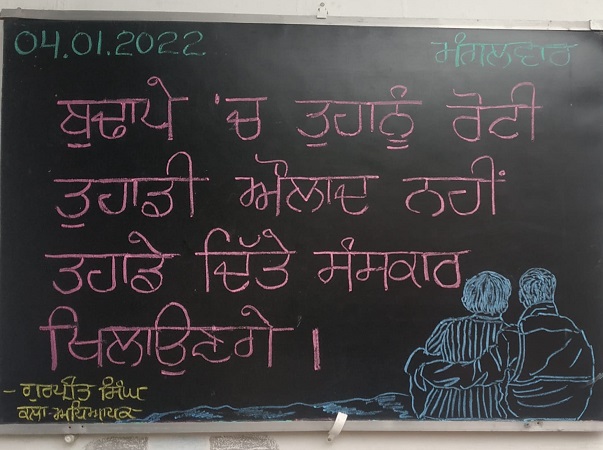 04.01.2022 ਮੰਗਲਵਾਰ
ਬੁਢਾਪੇ 'ਚ ਤੁਹਾਨੂੰ ਰੋਟੀ
ਤੁਹਾਡੀ ਔਲਾਦ ਨਹੀਂ
ਤੁਹਾਡੇ ਦਿੱਤੇ ਸੰਸਕਾਰ
ਖਿਲਾਉਣਗੇ ।
- ਗੁਰਪ੍ਰੀਤ ਸਿੰਘ
ਕਲਾ ਅਧਿਆਪਕ